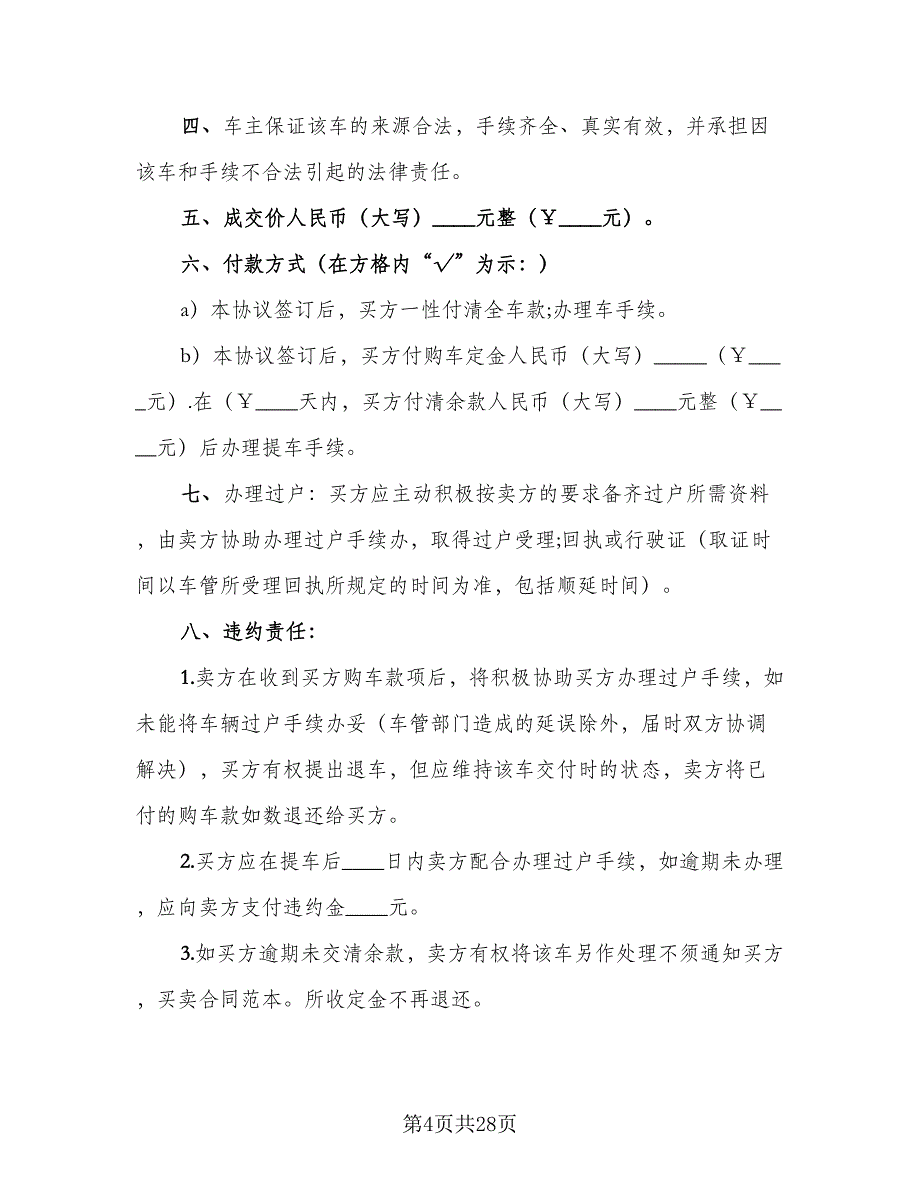 四、车主保证该车的来源合法，手续齐全、真实有效，并承担因
该车和手续不合法引起的法律责任。
五、成交价人民币（大写）____元整（￥____元）。
六、付款方式（在方格内“√”为示：）
a）本协议签订后，买方一性付清全车款;办理车手续。
b）本协议签订后，买方付购车定金人民币（大写）_____（￥___
_元）.在（￥____天内，买方付清余款人民币（大写）____元整（￥__
__元）后办理提车手续。
七、办理过户：买方应主动积极按卖方的要求备齐过户所需资料
，由卖方协助办理过户手续办，取得过户受理;回执或行驶证（取证时
间以车管所受理回执所规定的时间为准，包括顺延时间）。
八、违约责任：
1.卖方在收到买方购车款项后，将积极协助买方办理过户手续，如
未能将车辆过户手续办妥（车管部门造成的延误除外，届时双方协调
解决），买方有权提出退车，但应维持该车交付时的状态，卖方将已
付的购车款如数退还给买方。
2.买方应在提车后____日内卖方配合办理过户手续，如逾期未办理
，应向卖方支付违约金____元。
3.如买方逾期未交清余款，卖方有权将该车另作处理不须通知买方
，买卖合同范本。所收定金不再退还。
第4页共28页